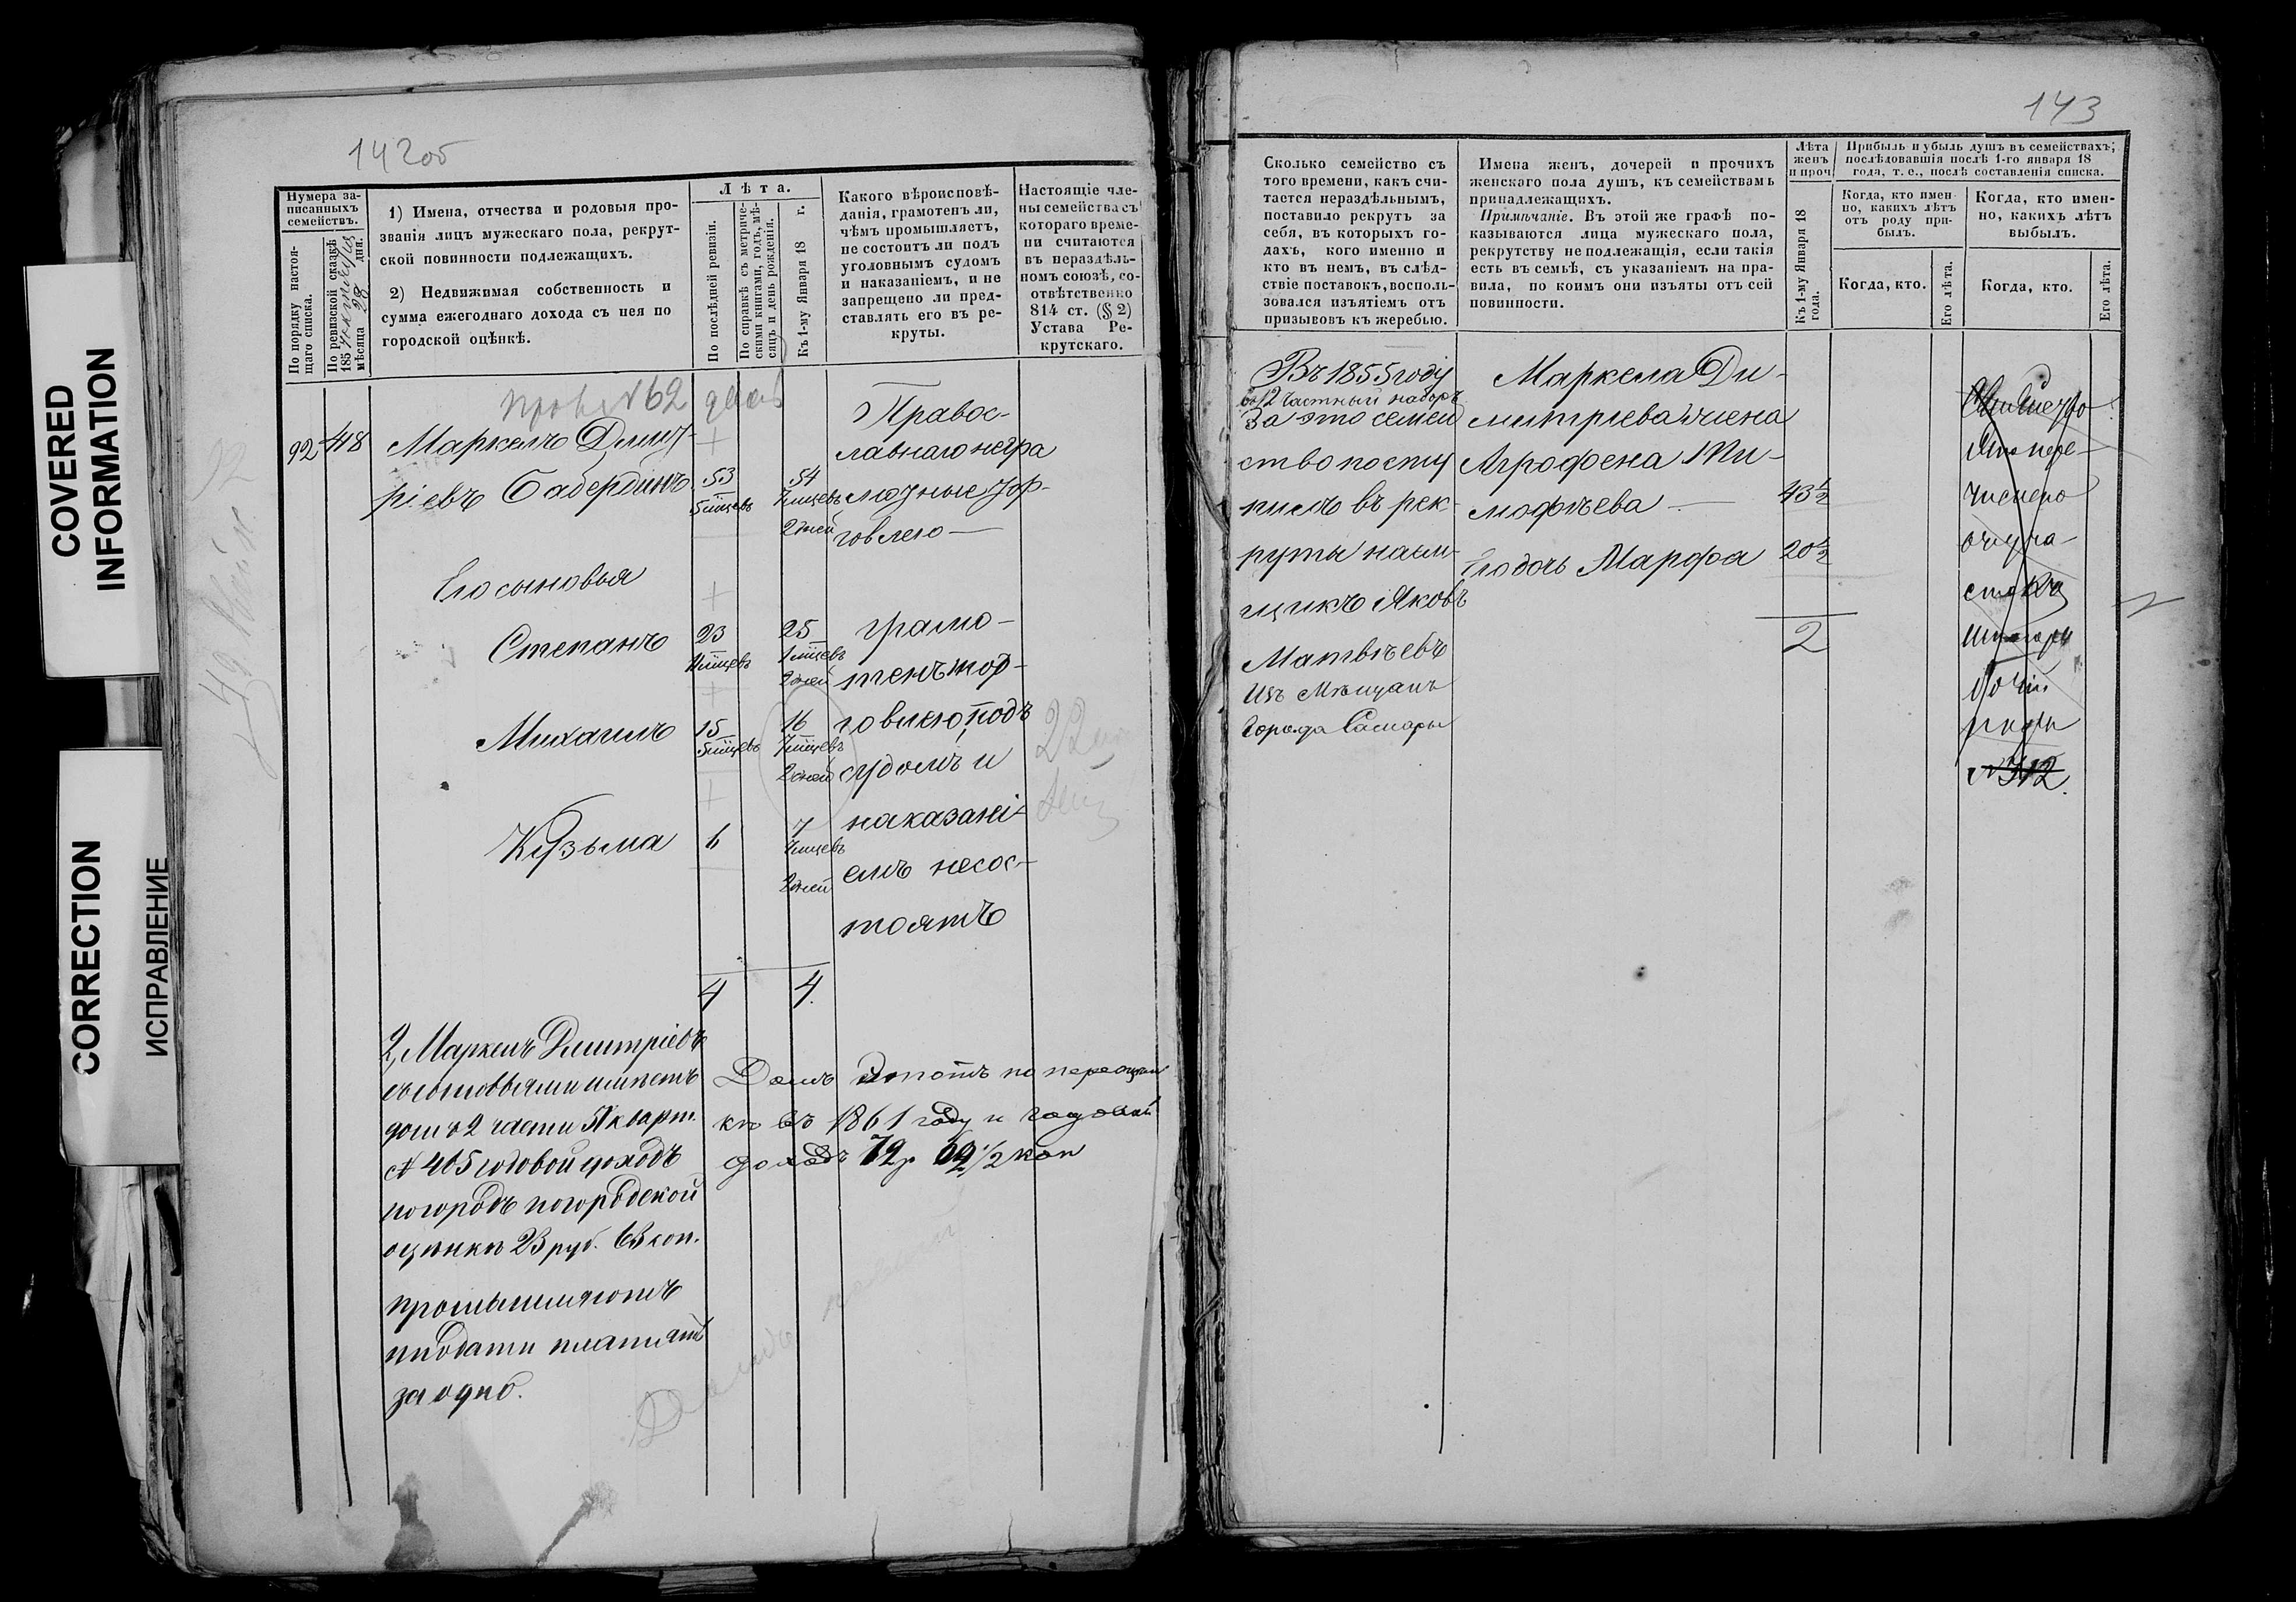 COVERED
INFORMATION
CORRECTION
ИСПРАВЛЕНИЕ
142об
Нумера за-
писанныхъ
семействъ.
По порядку настоя-
щаго списка.
По ревизской сказкѣ
185 мѣсяца 28 дня.
1) Имена, отчества и родовыя про-
званія лицъ мужескаго пола, рекрут-
ской повинности подлежащихъ.
2) Недвижимая собственность и
сумма ежегоднаго дохода съ нея по
городской оцѣнкѣ.
Лѣта.
По послѣдней ревизіи.
По справкѣ съ метриче-
скими книгами, годъ, мѣ-
сяцъ и день рожденія.
Къ 1-му Января 18 г.
Какого вѣроисповѣ-
данія, грамотенъ ли,
чѣмъ промышляетъ,
не состоитъ ли подъ
уголовнымъ судомъ
и наказаніемъ, и не
запрещено ли пред-
ставлять его въ ре-
круты.
Настоящіе чле-
ны семейства съ
котораго време-
ни считаются
въ нераздѣль-
номъ союзѣ, со-
отвѣтственно
814 ст. (§ 2)
Устава Ре-
крутскаго.
№ 62
92 418 Маркелъ Дмит-
ріевъ Бабердинъ
53
5 мѣцевъ
54
7 мѣцевъ
2 дней
Правос-
лавнаго негра
мотные тор-
говлею
Его сыновья
Степанъ
23
25
1 мѣцевъ
2 дней
грамо-
тенъ тор-
Михаилъ
15
5 мѣцевъ
16
7 мѣцевъ
2 дней
говлею, подъ
судомъ и
Кузьма
6
7
7 мѣцевъ
2 дней
наказані-
емъ несос-
тоятъ
22
4 4.
2, Маркелъ Дмитріевъ
съ сыновьями имѣетъ
домъ 2 части 51 кварт.
№ 405 годовой доходъ
по городской
оцѣнки 23 руб. 63 коп.
промышляютъ
подати платятъ
за одно.
Домъ этотъ по переоцѣн
кѣ въ 1861 году и годовой
доходъ 72 р 69 1/2 коп
143
Сколько семейство съ
того времени, какъ счи-
тается нераздѣльнымъ,
поставило рекрутъ за
себя, въ которыхъ го-
дахъ, кого именно и
кто въ немъ, въ слѣд-
ствіе поставокъ, восполь-
зовался изъятіемъ отъ
призывовъ къ жеребью.
Имена женъ, дочерей и прочихъ
женскаго пола душъ, къ семействамъ
принадлежащихъ.
Примѣчаніе. Въ этой же графѣ по-
казываются лица мужескаго пола,
рекрутству не подлежащія, если такія
есть въ семьѣ, съ указаніемъ на пра-
вила, по коимъ они изъяты отъ сей
повинности.
Лѣта
женъ
и проч
Къ 1-му Января 18
года.
Прибыль и убыль душъ въ семействахъ,
послѣдовавшія послѣ 1-го января 18
года, т. е., послѣ составленія списка.
Когда, кто имен-
но, какихъ лѣтъ
отъ роду при-
былъ.
Когда, кто имен-
но, какихъ лѣтъ
выбылъ.
Когда, кто.
Его лѣта.
Когда, кто.
Его лѣта.
Въ 1855 году
въ 12 частный наборъ
За это семей
ство посту
пилъ въ рек-
руты наем-
щикъ Яковъ
Матвѣевъ
изъ Мѣщанъ
Города Самары
Маркела Ди-
митріева жена
Агрофена Ти-
мофѣева
43 1/2
Его дочь Марфа
20 1/2
2
№ 312